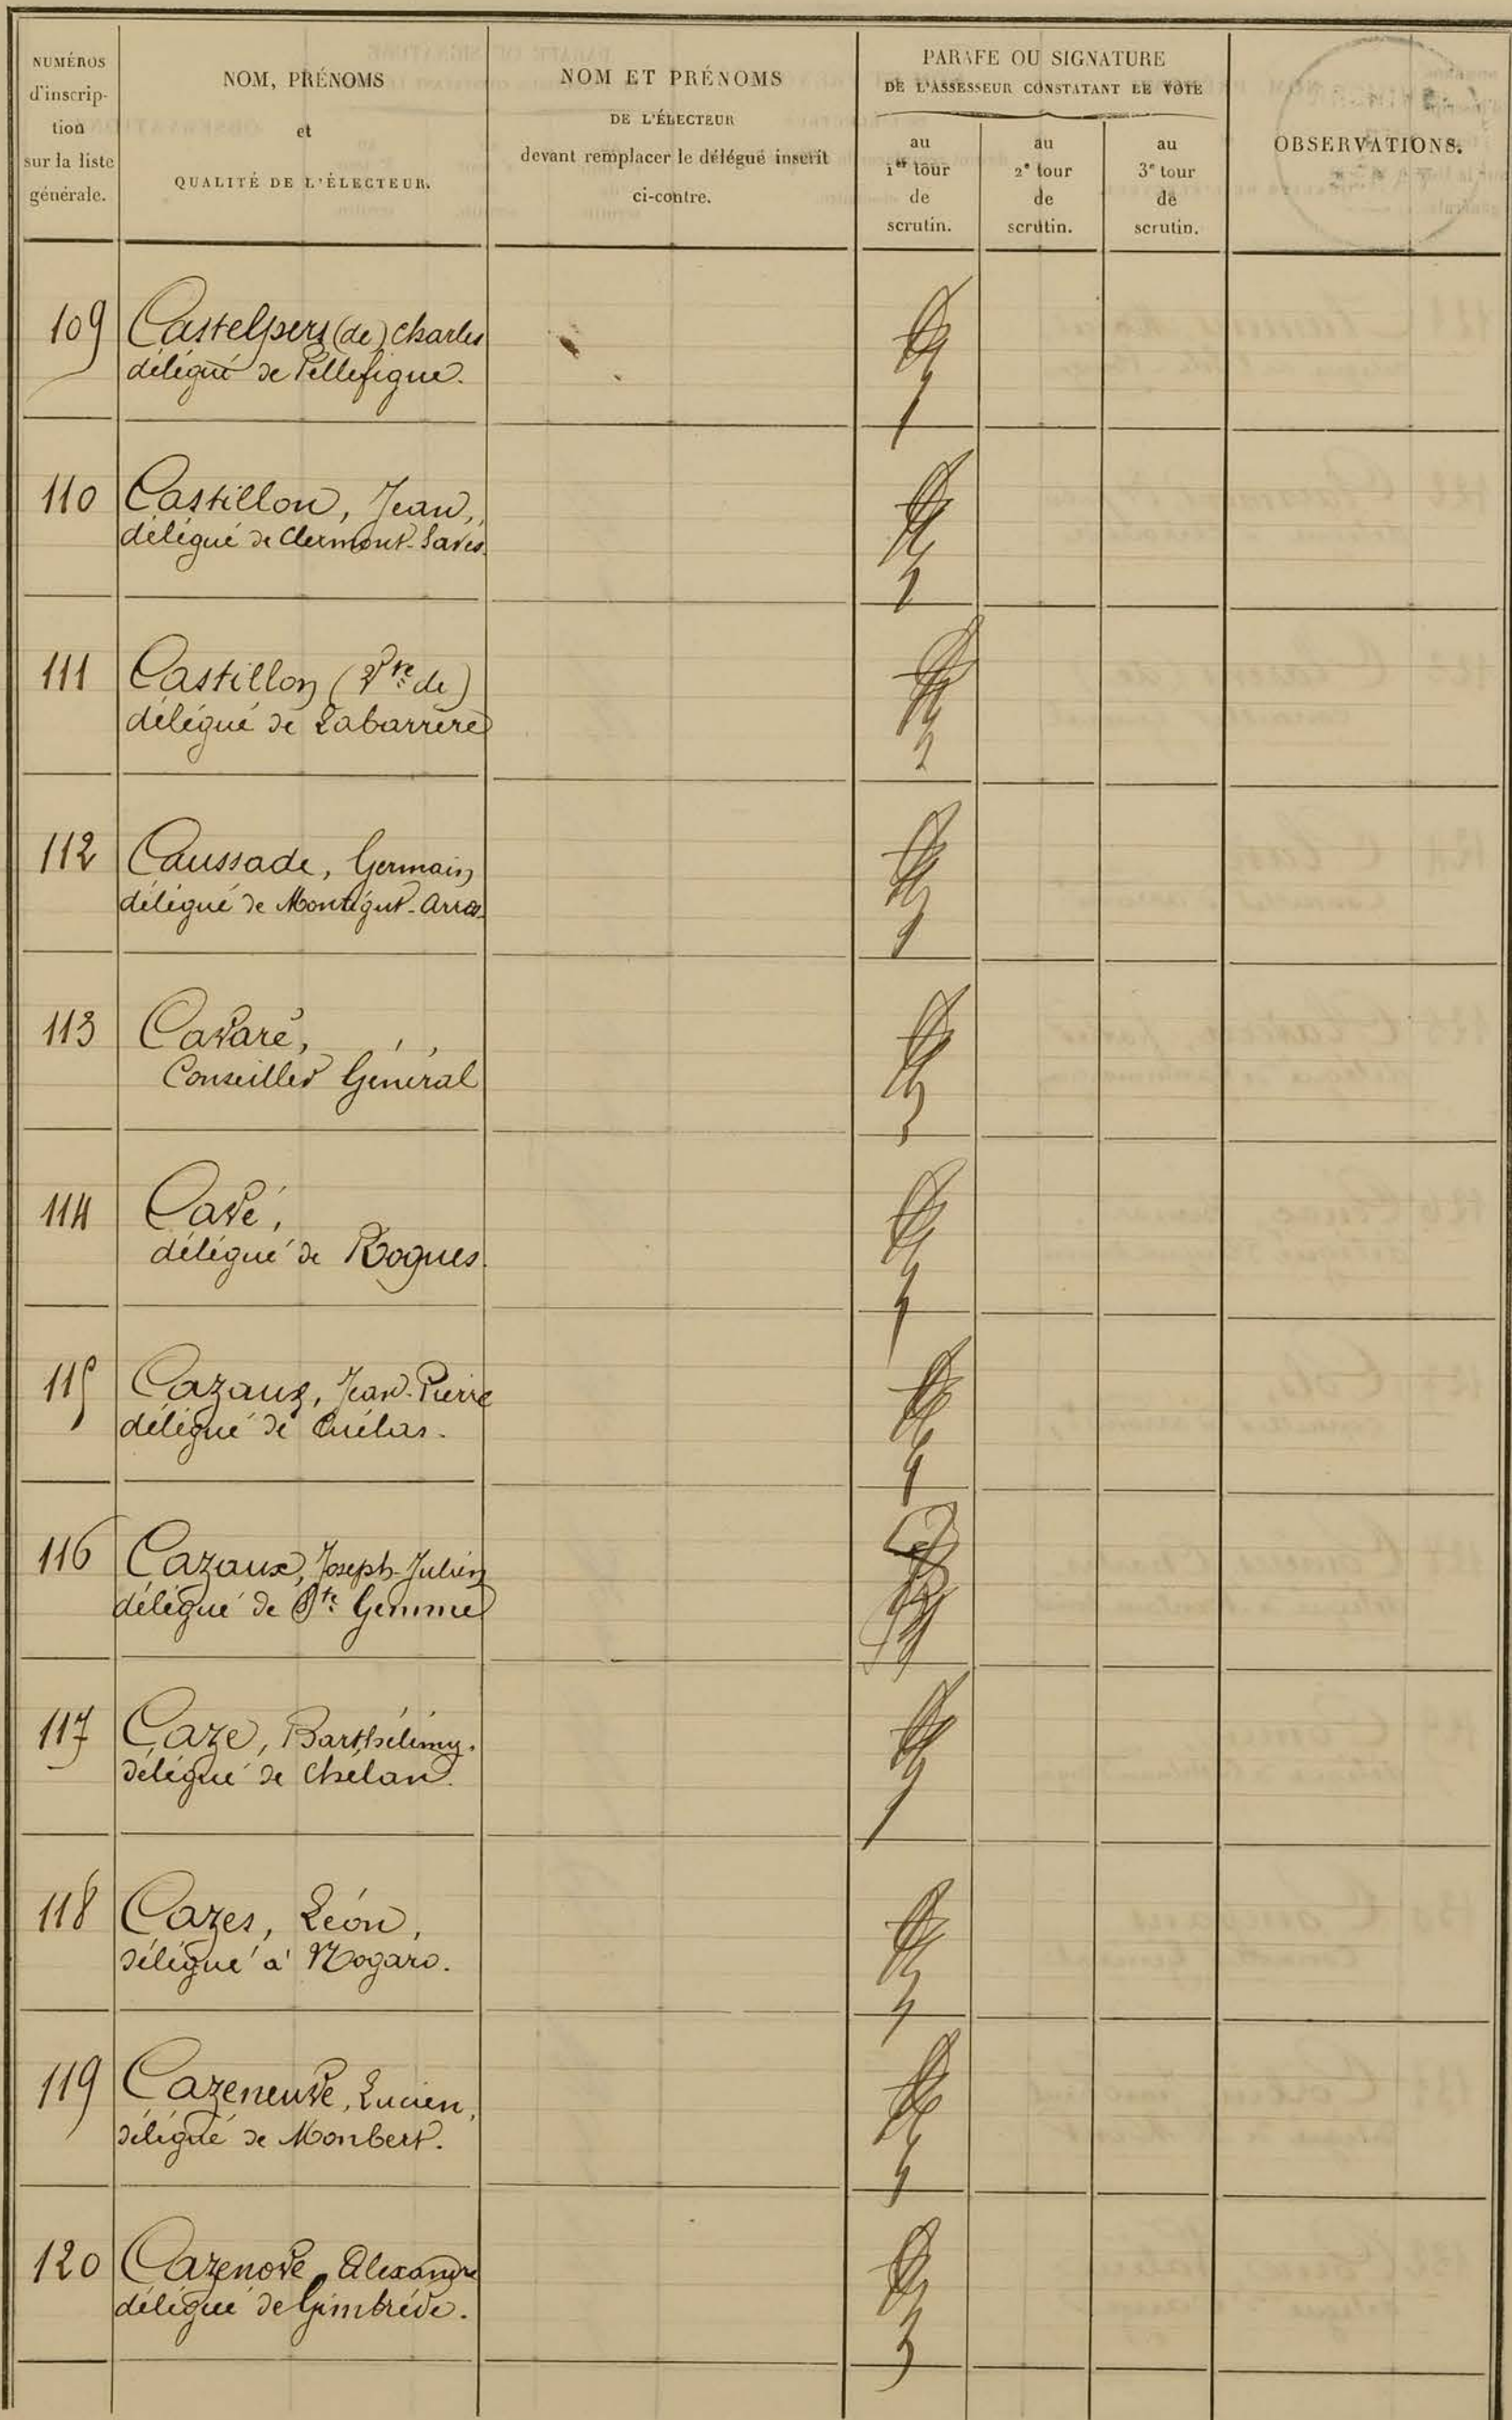 NUMÉROS
d'inscrip-
tion
sur la liste
générale.
NOM, PRÉNOMS
et
QUALITÉ DE L'ÉLECTEUR.
NOM ET PRÉNOMS
DE L'ÉLECTEUR
devant remplacer le délégué inscrit
ci-contre.
PARAFE OU SIGNATURE
DE L'ASSESSEUR CONSTATANT LE VOTE
au
1er tour
de
scrutin.
au
2e tour
de
scrutin.
au
3e tour
de
scrutin.
OBSERVATIONS.
109 Castelpers (de) Charles
délégué de Pellefigue.
110 Castillon, Jean,
délégué de Clermont-Savès.
111 Castillon (Vte de)
délégué de Labarrère
112 Caussade, Germain
délégué de Montégut-Arros.
113 Cavaré,
Conseiller Général
114 Cavé,
délégué de Rogues.
115 Cazaux, Jean-Pierre
délégué de Cuélas.
116 Cazaux, Joseph-Julien
délégué de Ste Gemme
117 Caze, Barthélémy.
délégué de Chélan.
118 Cazes, Léon,
délégué à Nogaro.
119 Cazeneuve, Lucien,
délégué de Monbert.
120 Cazenove, Alexandre
délégué de Gimbrède.